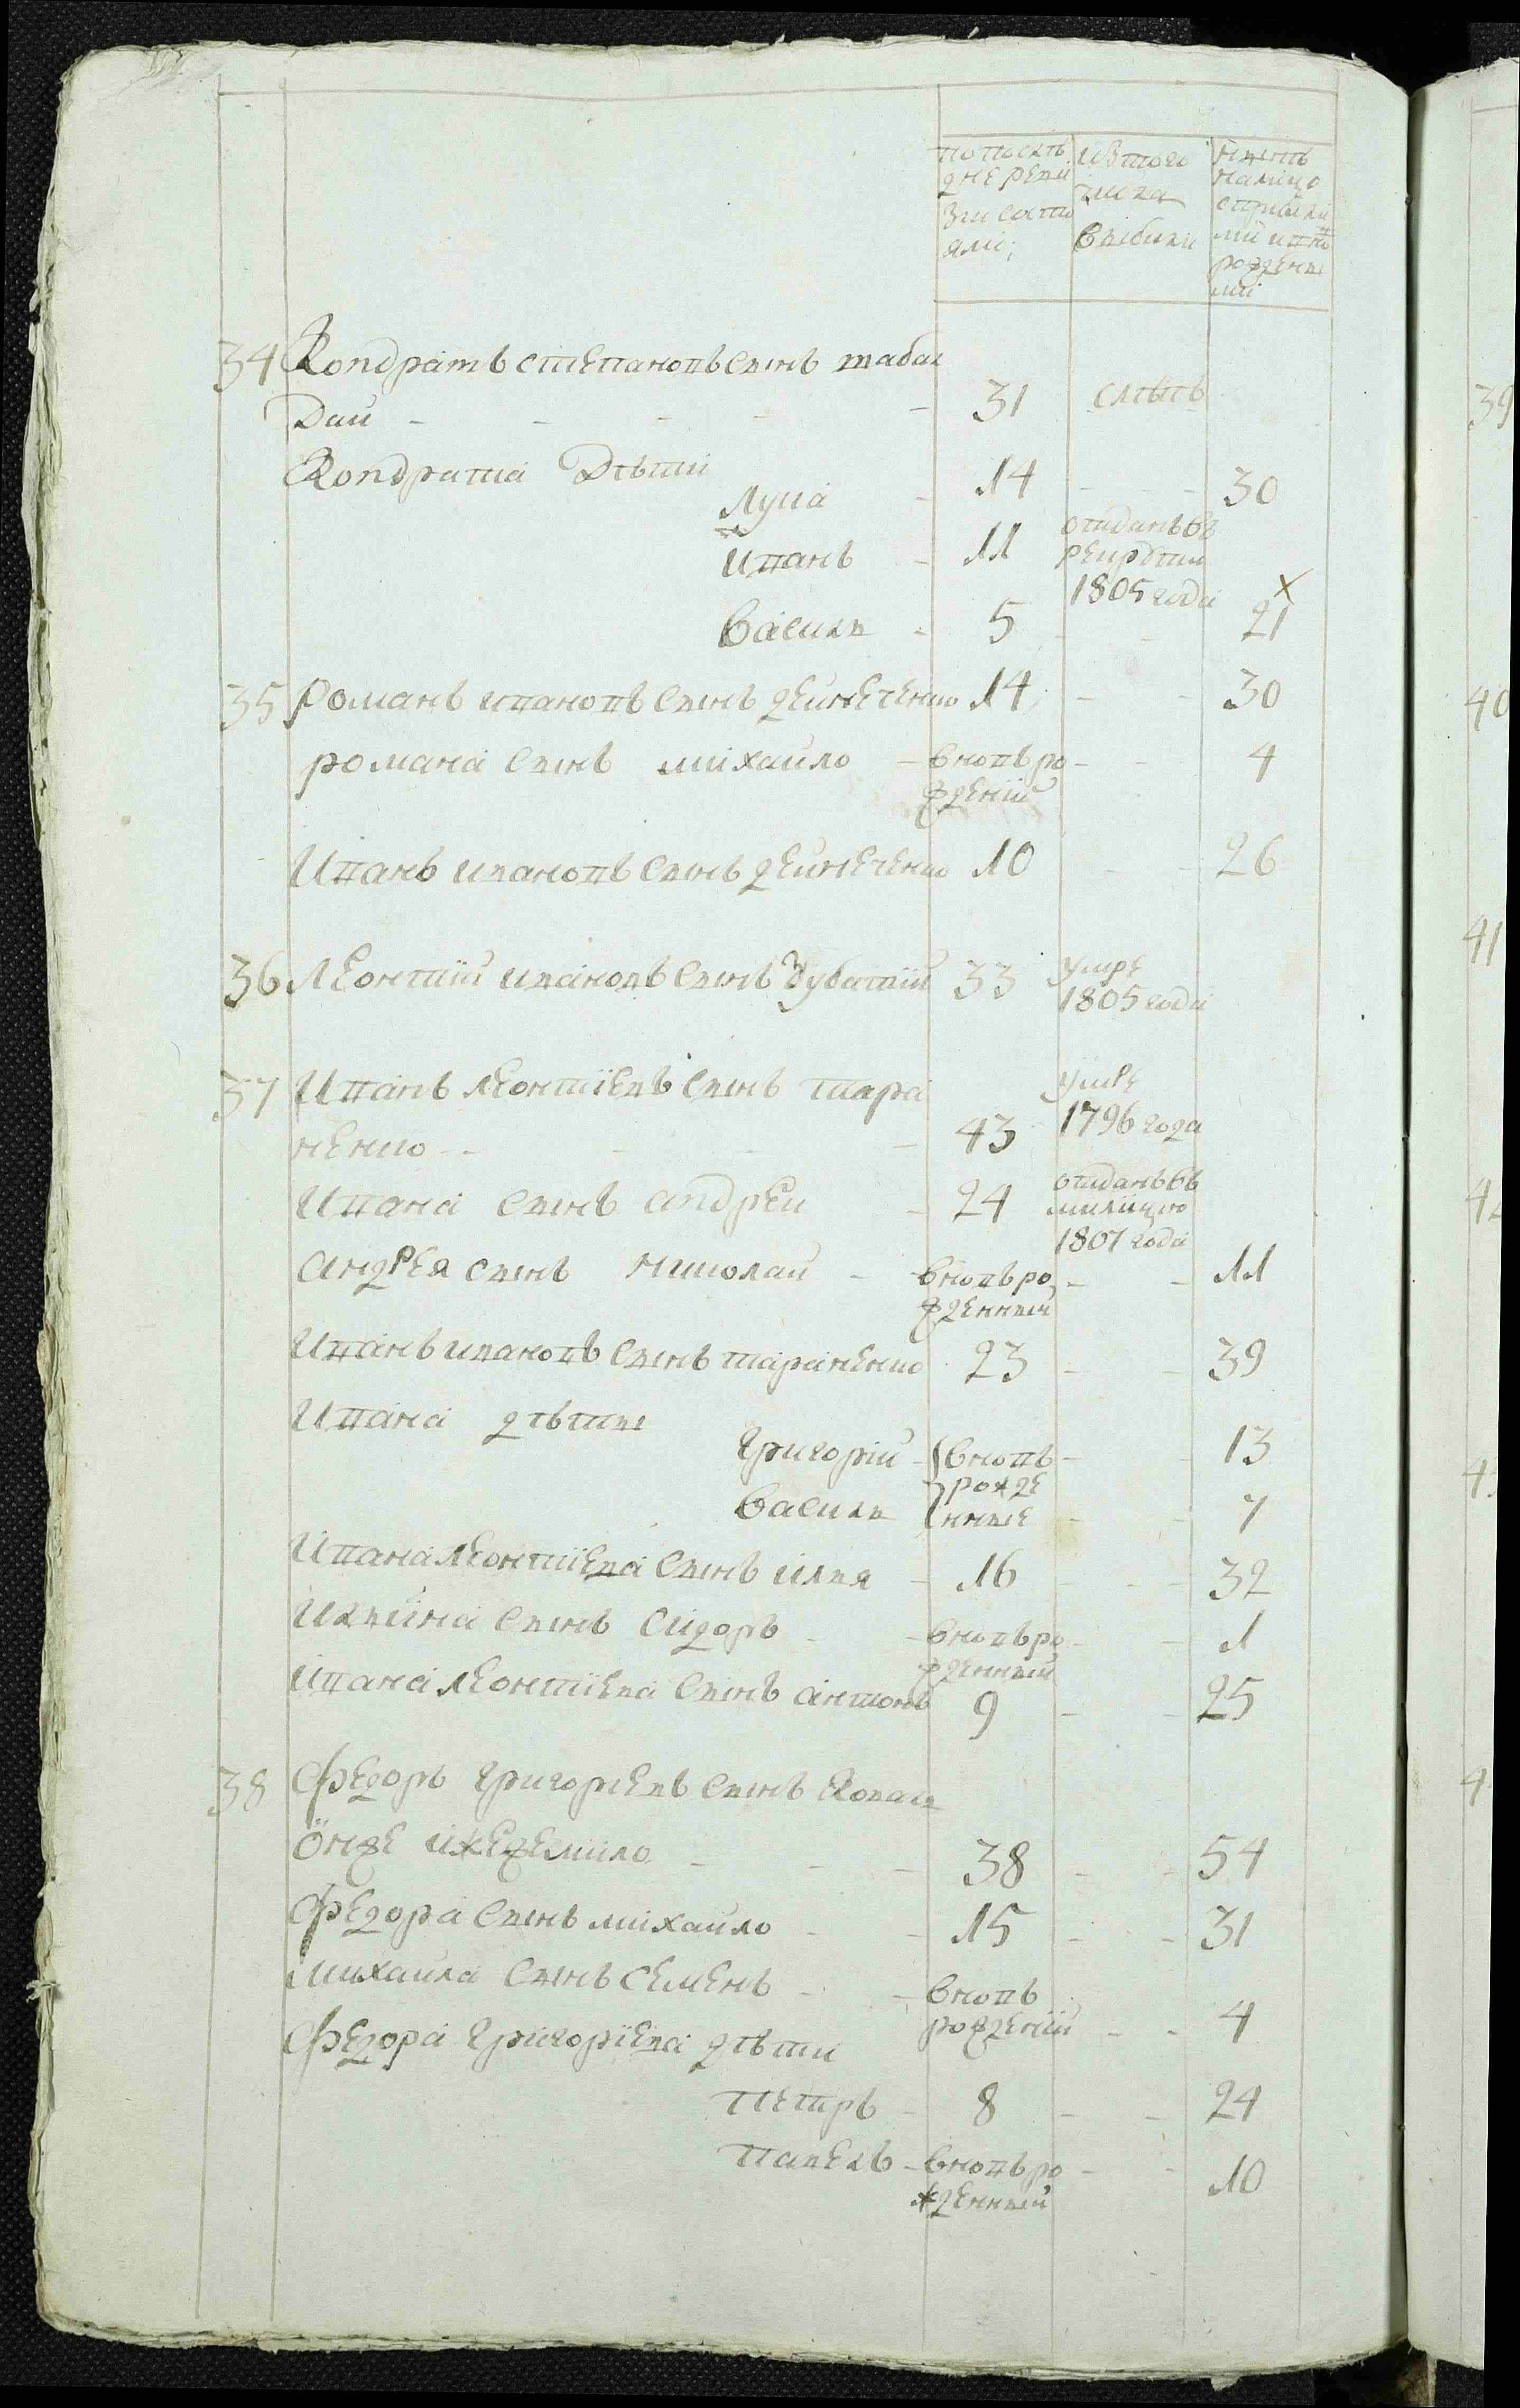 по посль
дней реви
зии состо
яли;
изтого
числа
выбили
ныне
налицо
сприбили
ми и вно
рожденны
ми
34 Кондратъ степановъ сынъ табал
дай - - - - 31 слепъ
Кондрата Дѣти
Лука - 14 - - 30
Иванъ - 11 отданъ въ
рекруты
1805 года
Василь - 5 - - 21
35 Романъ ивановъ сынъ дейнеченко 14 - - 30
романа сынъ михайло - вновъ ро - - 4
жденій
Иванъ ивановъ сынъ дейнеченко 10 - - 26
36 Леонтій ивановъ сынъ Зубатий 33 умре
1805 года
37 Иванъ леонтіевъ сынъ тара
ненко - - - - 43 умре
1796 года
Ивана сынъ андрей - 24 отданъ въ
милицію
1807 года
андрея сынъ николай - вновъ ро - - 11
жденный
Иванъ ивановъ сынъ тараненко 23 - - 39
Ивана дѣты
Григорій - вновъ - - 13
рожде
Василь нные - - 7
Ивана леонтіева сынъ илья - 16 - - 32
Ильина сынъ сидоръ - вновъ ро - - 1
жденный
ивана леонтіева сынъ антонъ 9 - - 25
38 Федоръ григоріевъ сынъ Ковал
онже ижедемило - - - 38 - - 54
Федора сынъ михайло - - 15 - - 31
михайла сынъ семенъ - - вновъ
рожденій - - 4
Федора григоріева дѣти
петръ - 8 - - 24
павелъ - вновъ ро - - 10
жденный
39
40
41